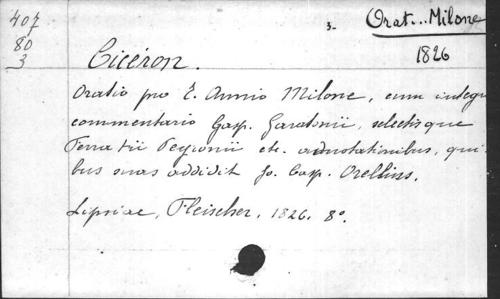 407
80
3
3-
Orat... Milone
1826
Cicéron.
Oratio pro T. Annio Milone, cum integr
commentario Gasp. Garatonii, selectisque
Ferratii Peyronii etc. adnotationibus, qui
bus suas addidit Jo. Casp. Orellius.
Lipsiae, Fleischer, 1826. 8°.